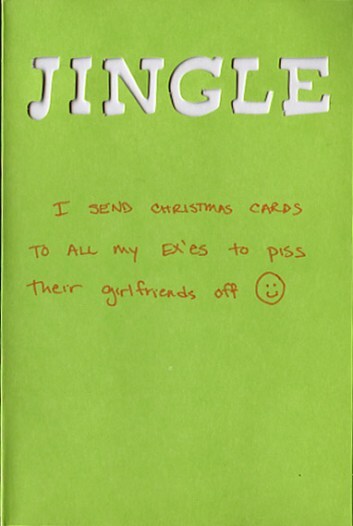 JINGLE
I SEND CHRISTMAS CARDS
TO ALL my EX'ES to piss
their girlfriends off